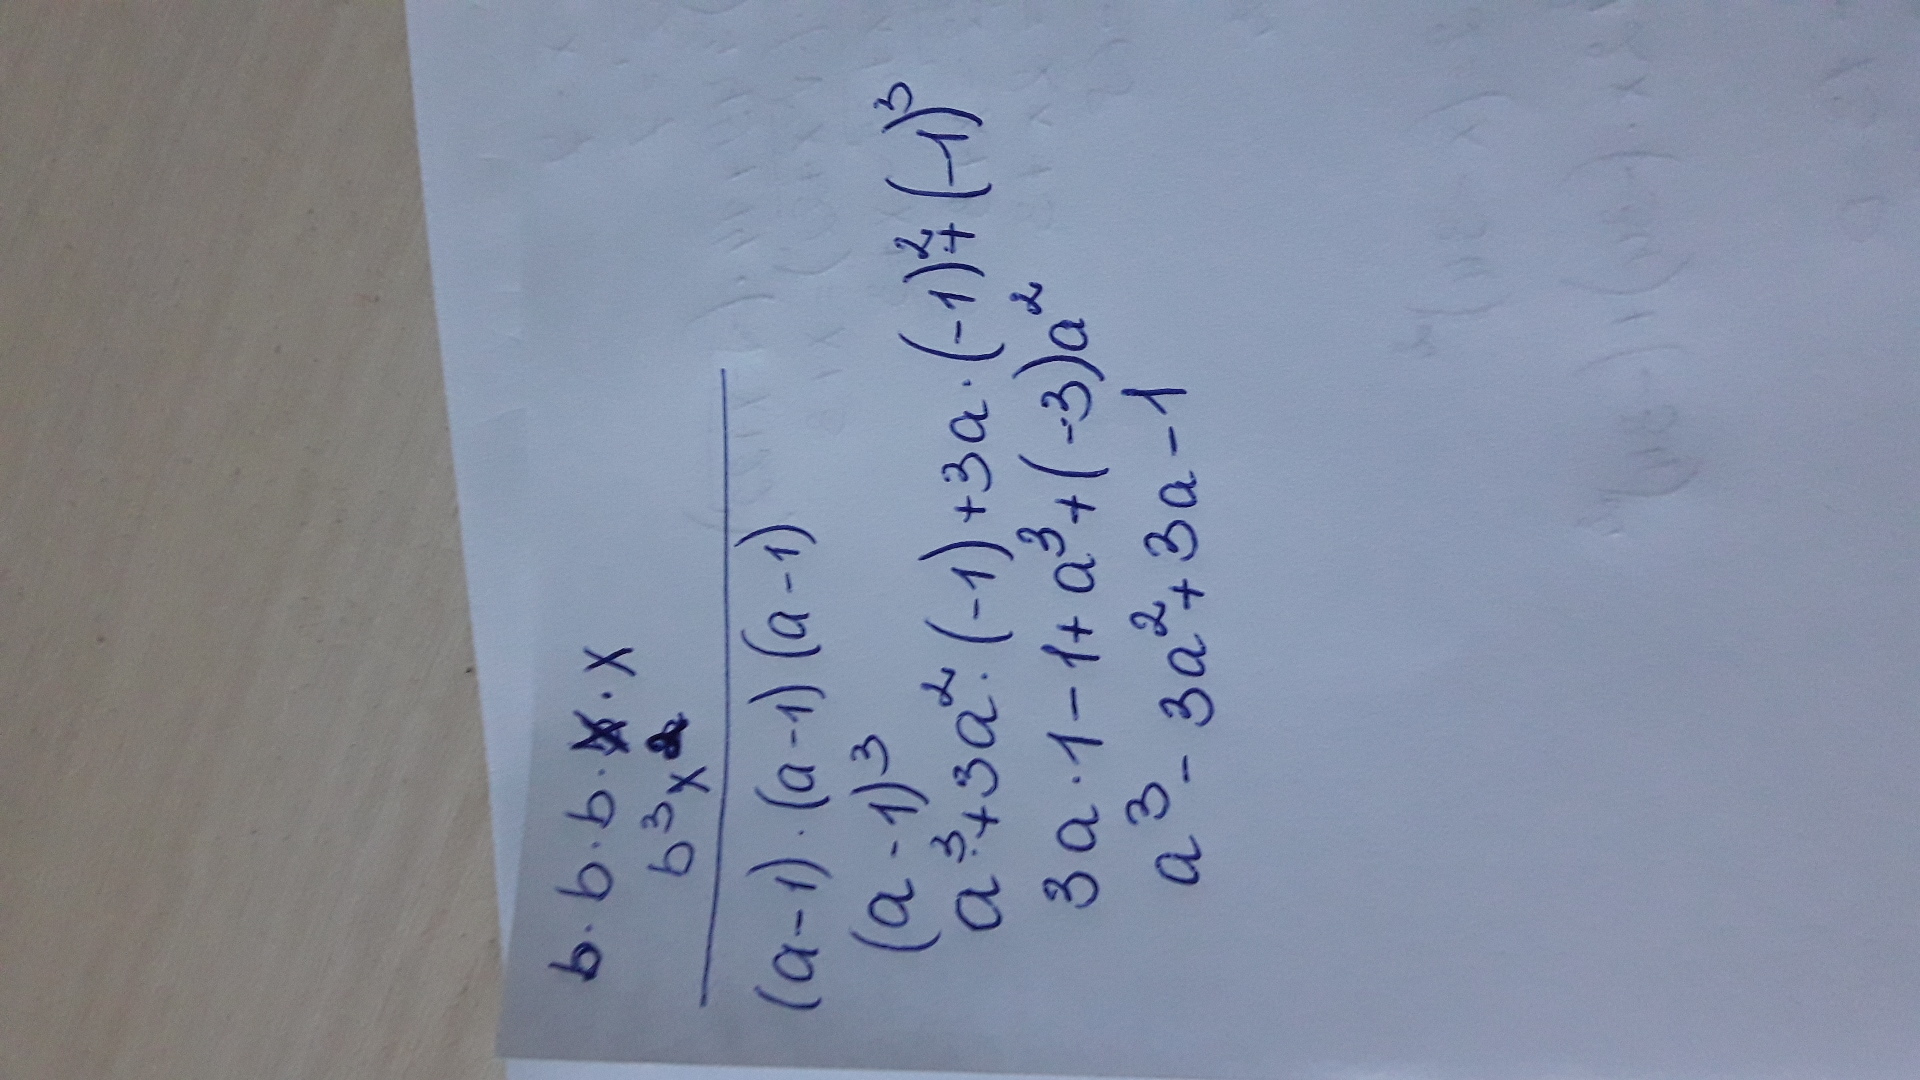 b·b·b·x·x
b³x²
(a-1)·(a-1)(a-1)
(a-1)³
a³+3a²·(-1)+3a·(-1)²+(-1)³
3a·1-1+a³+(-3)a²
a³-3a²+3a-1